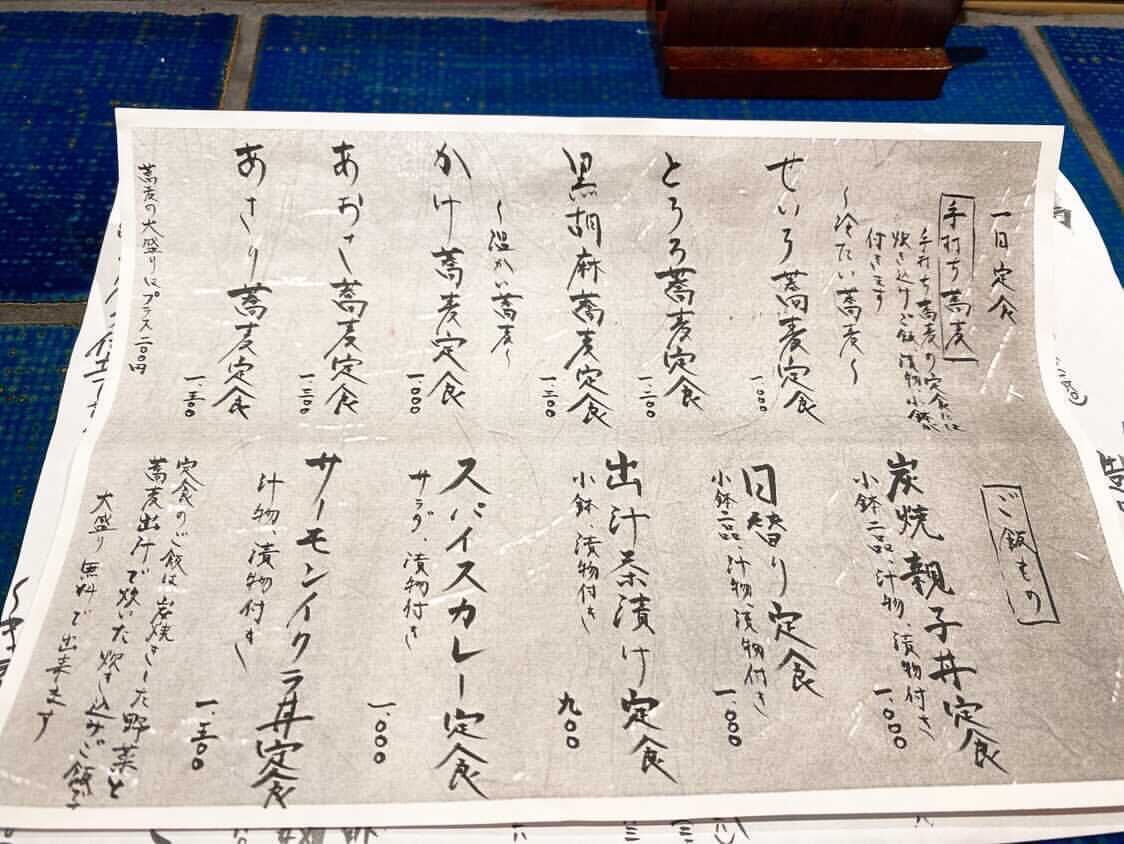 一日定食
手打ち蕎麦
手打ち蕎麦の定食には
炊き込みご飯、漬物、小鉢が
付きます
〜冷たい蕎麦〜
せいろ蕎麦定食
一、〇〇〇
とろろ蕎麦定食
一、二〇〇
黒胡麻蕎麦定食
一、二〇〇
〜温かい蕎麦〜
かけ蕎麦定食
一、〇〇〇
あおさ蕎麦定食
一、三〇〇
あさり蕎麦定食
一、三〇〇
蕎麦の大盛りはプラス二〇〇円
ご飯もの
炭焼親子丼定食
小鉢二品、汁物、漬物付き
一、〇〇〇
日替り定食
小鉢二品、汁物、漬物付き
一、〇〇〇
出汁茶漬け定食
小鉢、漬物付き
九〇〇
スパイスカレー定食
サラダ、漬物付き
一、〇〇〇
サーモンイクラ丼定食
汁物、漬物付き
一、五〇〇
定食のご飯は炭焼きした野菜と
蕎麦出汁で炊いた炊き込みご飯です
大盛り無料で出来ます